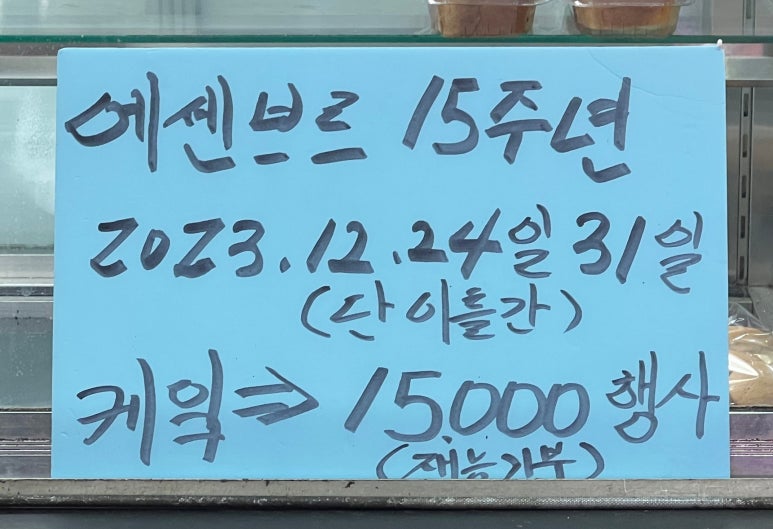 에센브르 15주년
2023.12.24일 31일
(단 이틀간)
케잌⇒ 15.000 행사
(재능기부)